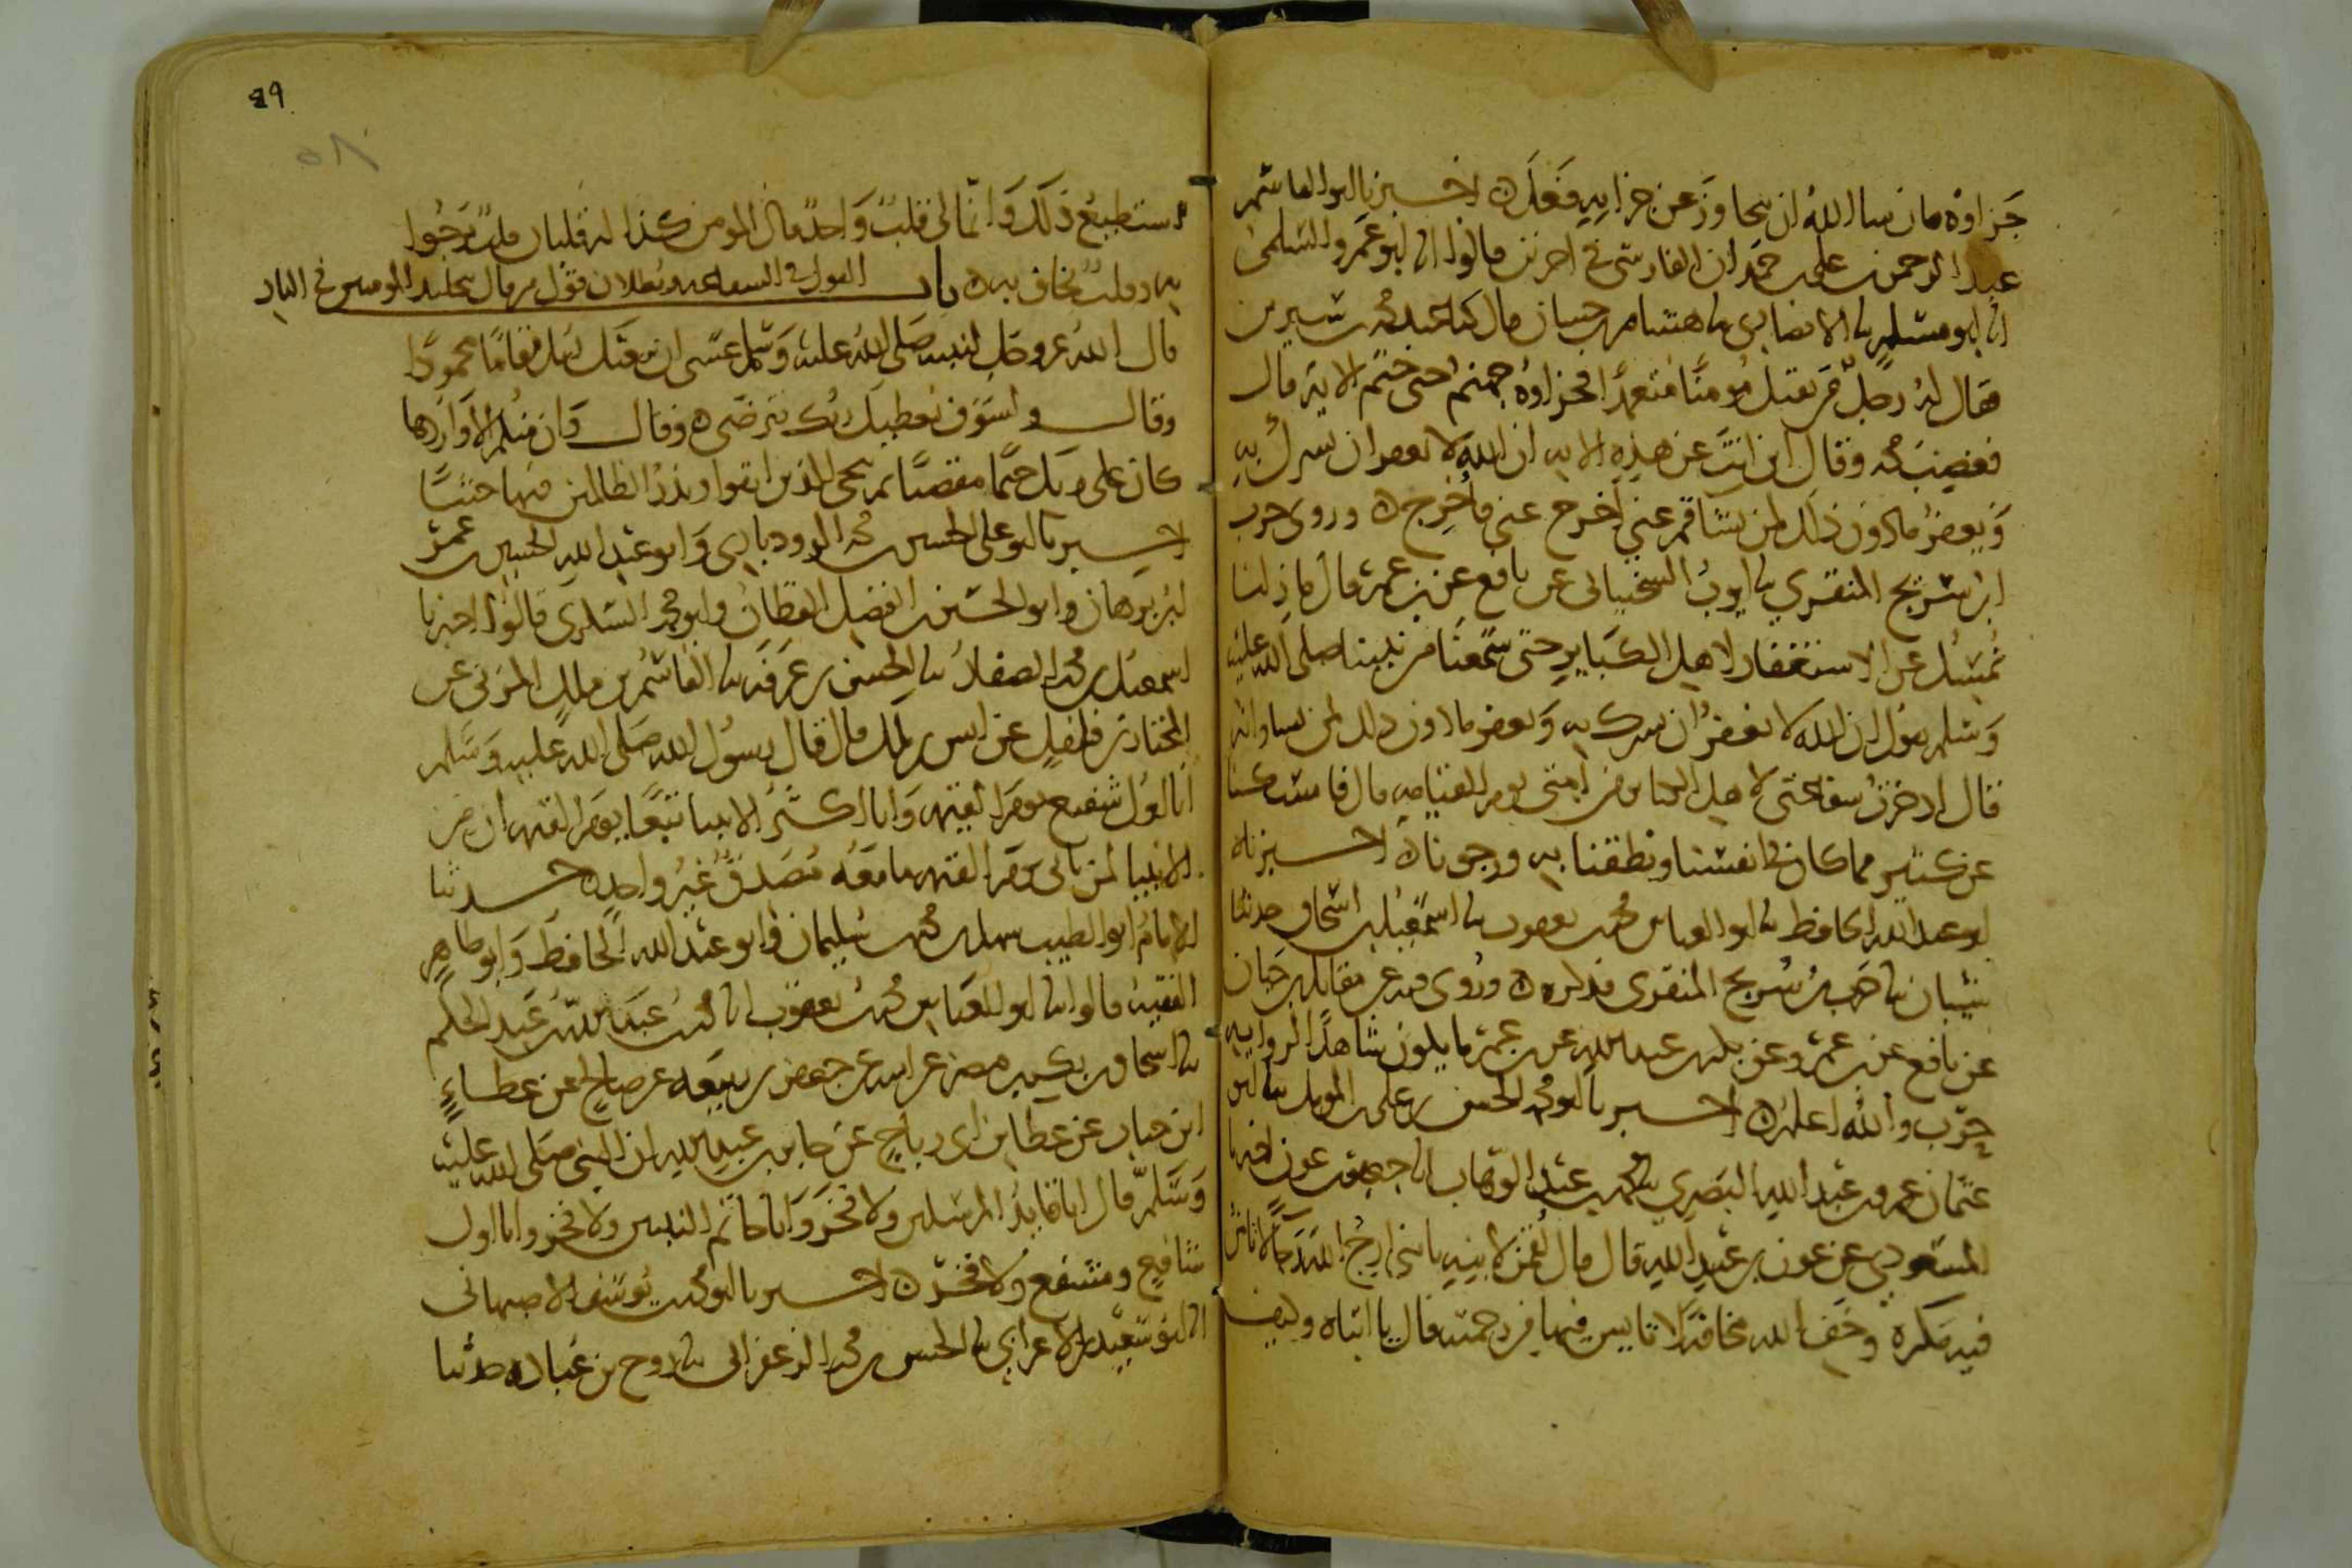 جزاوه فان شا الله ان يتجاوز عن جزايه فعل ه اخبرنا ابو القاسم
عبد الرحمن بن علي بن حمدان الفارسي في اخرين قالوا انا ابو عمرو السلمي
انا ابو مسلم نا الانصاري نا هشام بن حسان قال كنا عند محمد بن سيرين
فقال له رجل من يقتل مومنا متعمدا فجزاوه جهنم حتى ختم الاية قال
فغضب محمد وقال اين انت عن هذه الاية ان الله لا يغفر ان يشرك به
ويغفر ما دون ذلك لمن يشا قم عني اخرج عني فاخرج ه وروى حرب
ابن سريج المنقري نا ايوب السختياني عن نافع عن بن عمر قال ما زلنا
نمسك عن الاستغفار لاهل الكباير حتى سمعنا من نبينا صلى الله عليه
وسلم يقول ان الله لا يغفر ان يشرك به ويغفر ما دون ذلك لمن يشا وانه
قال ادخرت شفاعتي لاهل الكباير من امتي يوم القيامه قال فامسكنا
عن كثير مما كان في انفسنا ونطقنا به ورجونا ه اخبرناه
ابو عبد الله الحافظ نا ابو العباس محمد بن يعقوب نا اسمعيل بن اسحاق حدثنا
شيبان نا حرب بن سريج المنقري فذكره ه وروي فيه عن مقاتل بن حيان
عن نافع عن بن عمر وعن بكر بن عبد الله عن بن عمر ما يكون شاهدا لرواية
حرب والله اعلم ه اخبرنا ابو محمد الحسن بن علي بن المومل نا ابو
عثمان عمرو بن عبد الله البصري نا محمد بن عبد الوهاب انا جعفر بن عون اخبرنا
المسعودي عن عون بن عبد الله قال قال لقمن لابنه يا بني ارج الله رجا لا تامن
فيه مكره وخف الله مخافة لا تايس فيها من رحمته قال يا ابتاه وكيف
89
استطيع ذلك وانما لي قلب واحد قال المومن كذا له قلبان قلب يرجوا
به وقلب يخاف به ه باب القول في الشفاعه وبطلان قول من قال بتخليد المومنين في النار
قال الله عز وجل لنبيه صلى الله عليه وسلم عسى ان يبعثك ربك مقاما محمودا
وقال ولسوف يعطيك ربك فترضى ه وقال وان منكم الا واردها
كان على ربك حتما مقضيا ثم ننجي الذين اتقوا ونذر الظالمين فيها جثيا
اخبرنا ابو علي الحسين بن محمد الروذباري وابو عبد الله الحسين بن عمر
ابن برهان وابو الحسين بن الفضل القطان وابو محمد السكري قالوا اخبرنا
اسمعيل بن محمد الصفار نا الحسن بن عرفه نا القاسم بن ملك المزني عن
المختار بن فلفل عن انس بن ملك قال قال رسول الله صلى الله عليه وسلم
انا اول شفيع يوم القيمه وانا اكثر الانبيا تبعا يوم القيمه ان من
الانبيا لمن ياتي يوم القيمه ما معه مصدق غير واحد ه حدثنا
الامام ابو الطيب سهل بن محمد بن سليمان وابو عبد الله الحافظ وابو طاهر
الفقيه قالوا نا ابو العباس محمد بن يعقوب انا محمد بن عبد الله بن عبد الحكم
نا اسحاق بن بكر بن مضر عن ابيه عن جعفر بن ربيعه عن صالح عن عطاء
ابن خباب عن عطا بن ابي رباح عن جابر بن عبد الله ان النبي صلى الله عليه
وسلم قال انا قايد المرسلين ولا فخر وانا خاتم النبيين ولا فخر وانا اول
شافع ومشفع ولا فخر ه اخبرنا ابو محمد بن يوسف الاصبهاني
انا ابو سعيد بن الاعرابي نا الحسن بن محمد الزعفراني نا روح بن عباده حدثنا